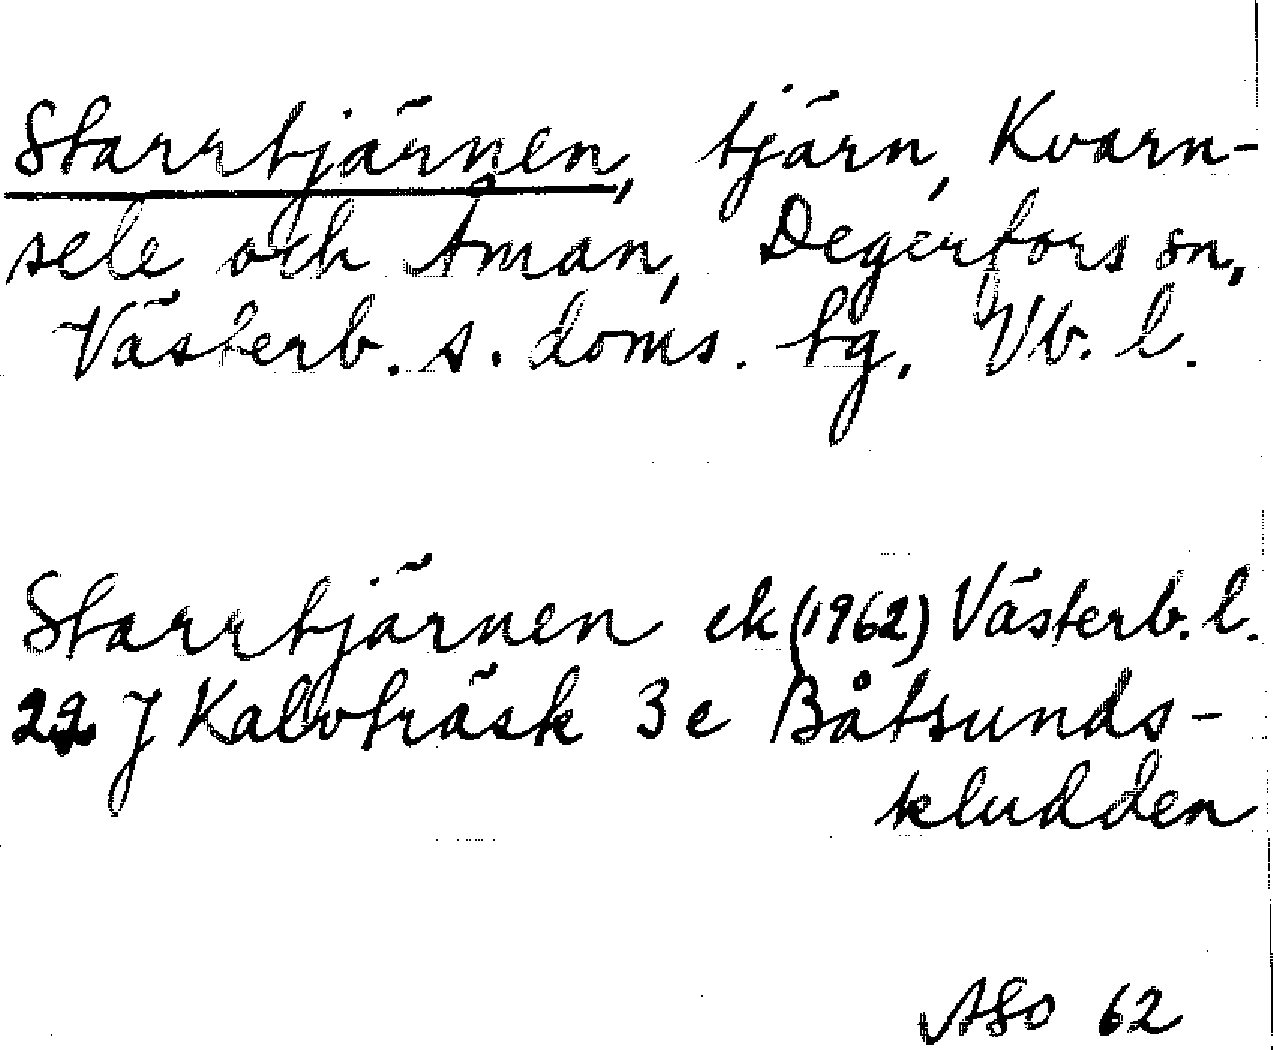 Starrtjärnen, tjärn, Kvarn-
sele och Åman, Degerfors sn,
Västerb. s. doms. tg, Vb. l.
Starrtjärnen ek (1962) Västerb. l.
22 J Kalvträsk 3 e Båtsunds-
kludden
ASO 62